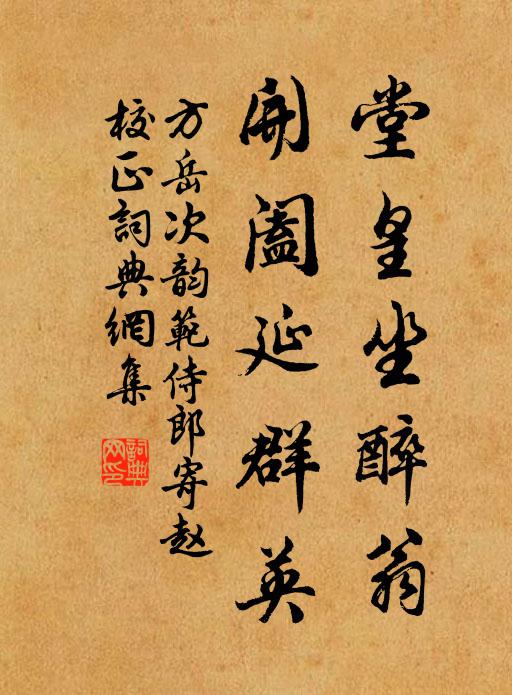 堂皇坐醉翁
開闔延群英
方岳次韵範侍郎寄赵
校正詞典網集
詞典网印